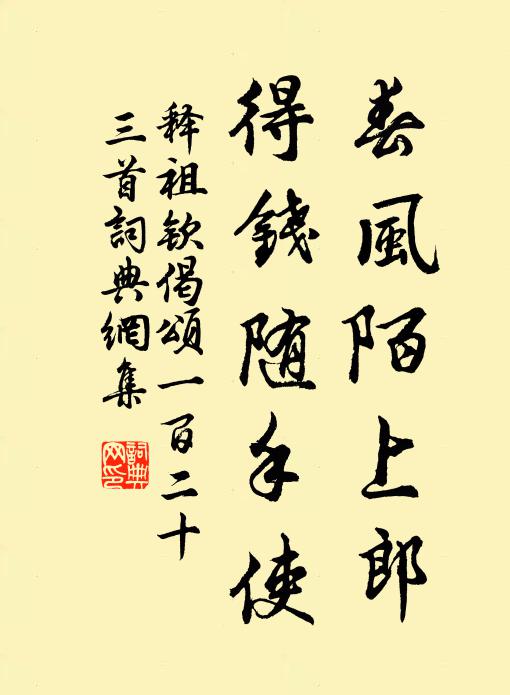 春風陌上郎
得錢随手使
释祖钦偈頌一百二十
三首詞典網集
詞典網印